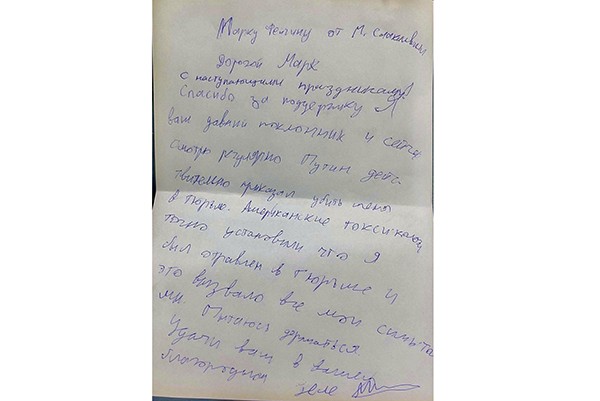 Марку Фейгину от М. Саакашвили
Дорогой Марк
с наступающими праздниками!
Спасибо за поддержку Я
ваш давний поклонник и сейчас
смотрю регулярно Путин дейс
твительно приказал убить меня
в тюрьме. Американские токсикологи
точно установили что я
был отравлен в тюрьме и
это вызвало все мои симпто
мы. Пытаюсь держаться
Удачи вам в вашем
благородном деле